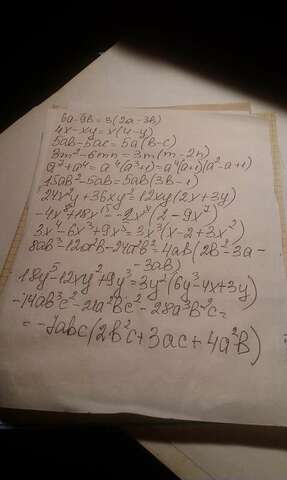 6a-9b=3(2a-3b)
4x-xy=x(4-y)
5ab-5ac=5a(b-c)
3m²-6mn=3m(m-2n)
a⁷+a⁴=a⁴(a³+1)=a⁴(a+1)(a²-a+1)
15ab²-5ab=5ab(3b-1)
24x²y+36xy²=12xy(2x+3y)
-4x⁸+18x¹⁵=-2x⁸(2-9x⁷)
3x⁴-6x³+9x⁵=3x³(x-2+3x²)
8ab³-12a²b-24a²b²=4ab(2b²-3a-
-3ab)
18y⁵-12xy²+9y³=3y²(6y³-4x+3y)
-14ab³c²-21a²bc²-28a³b²c=
=-7abc(2b²c+3ac+4a²b)